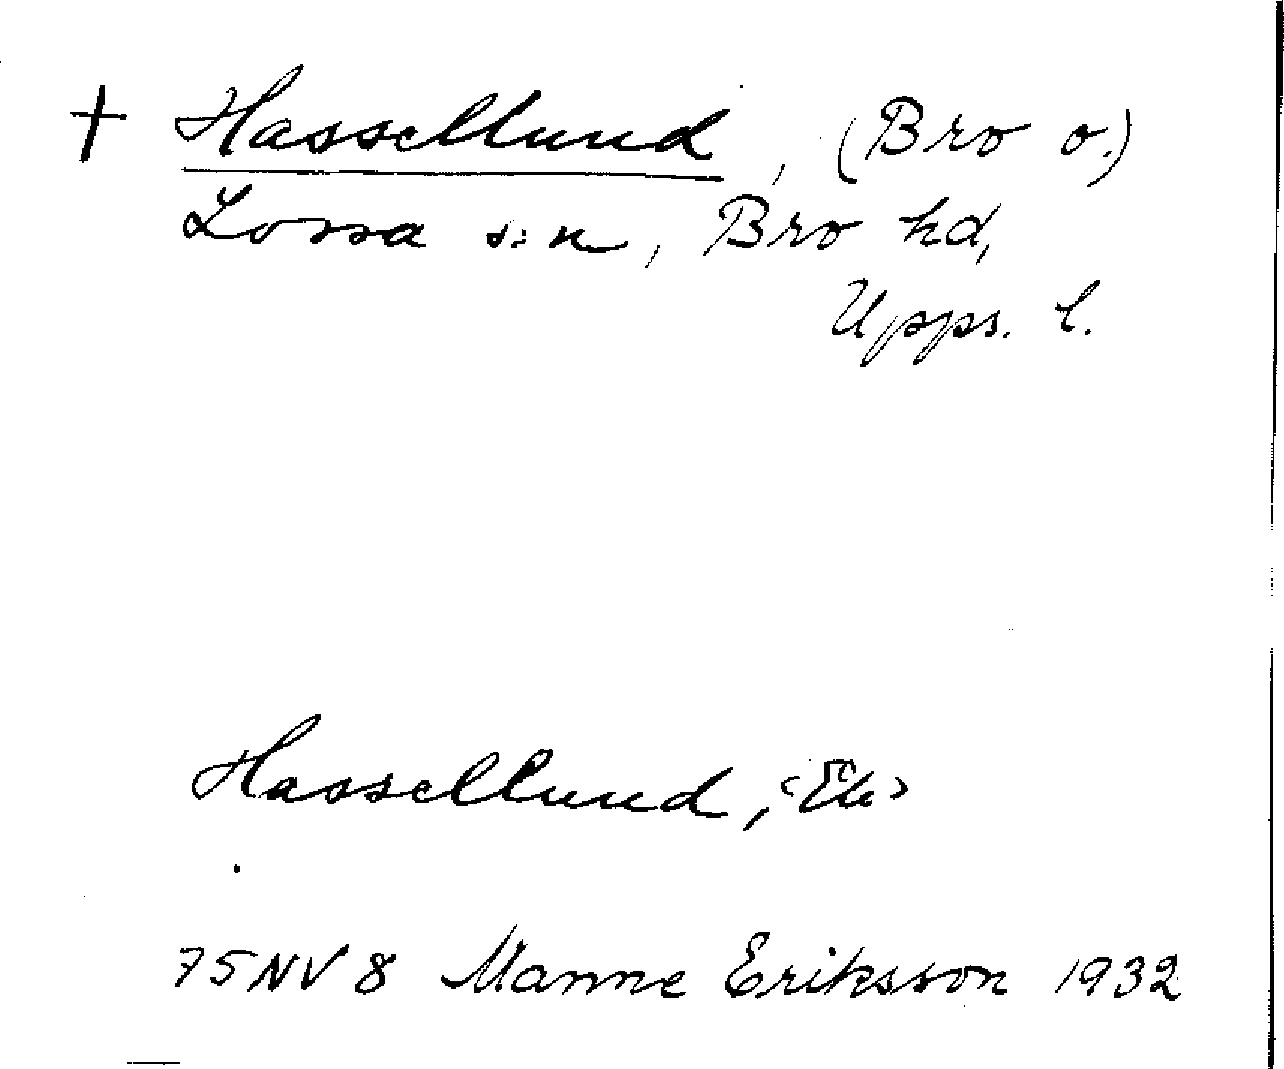 + Hassellund, (Bro o.)
Lossa s:n, Bro hd,
Upps. l.
Hassellund, <Ek>
75NV8 Manne Eriksson 1932